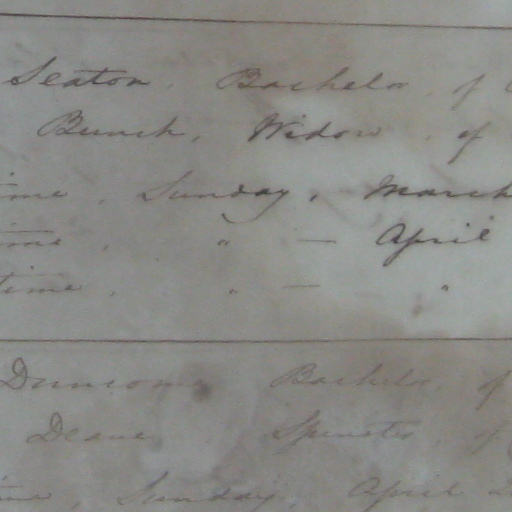 Seaton, Bachelor, of
Bunch, Widow, of
time, Sunday, March
time, " — April
time, " — "
Duncomb Bachelor, of
Deane, Spinster, of
time, Sunday, April